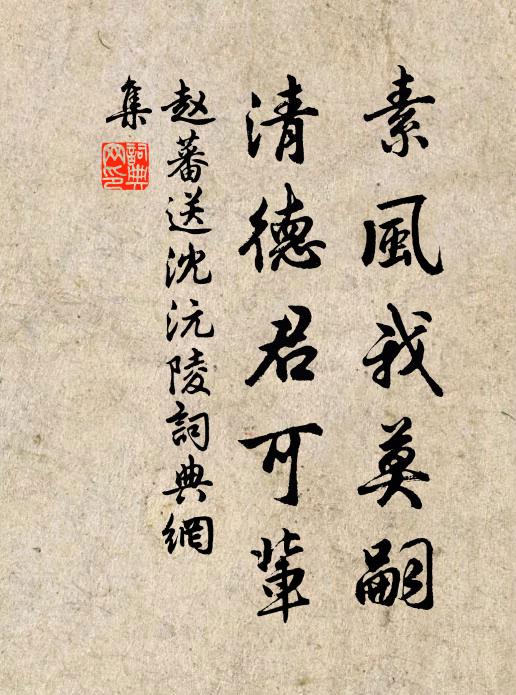 素風我莫嗣
清德君可輩
赵蕃送沈沅陵詞典網
集
詞典
网印